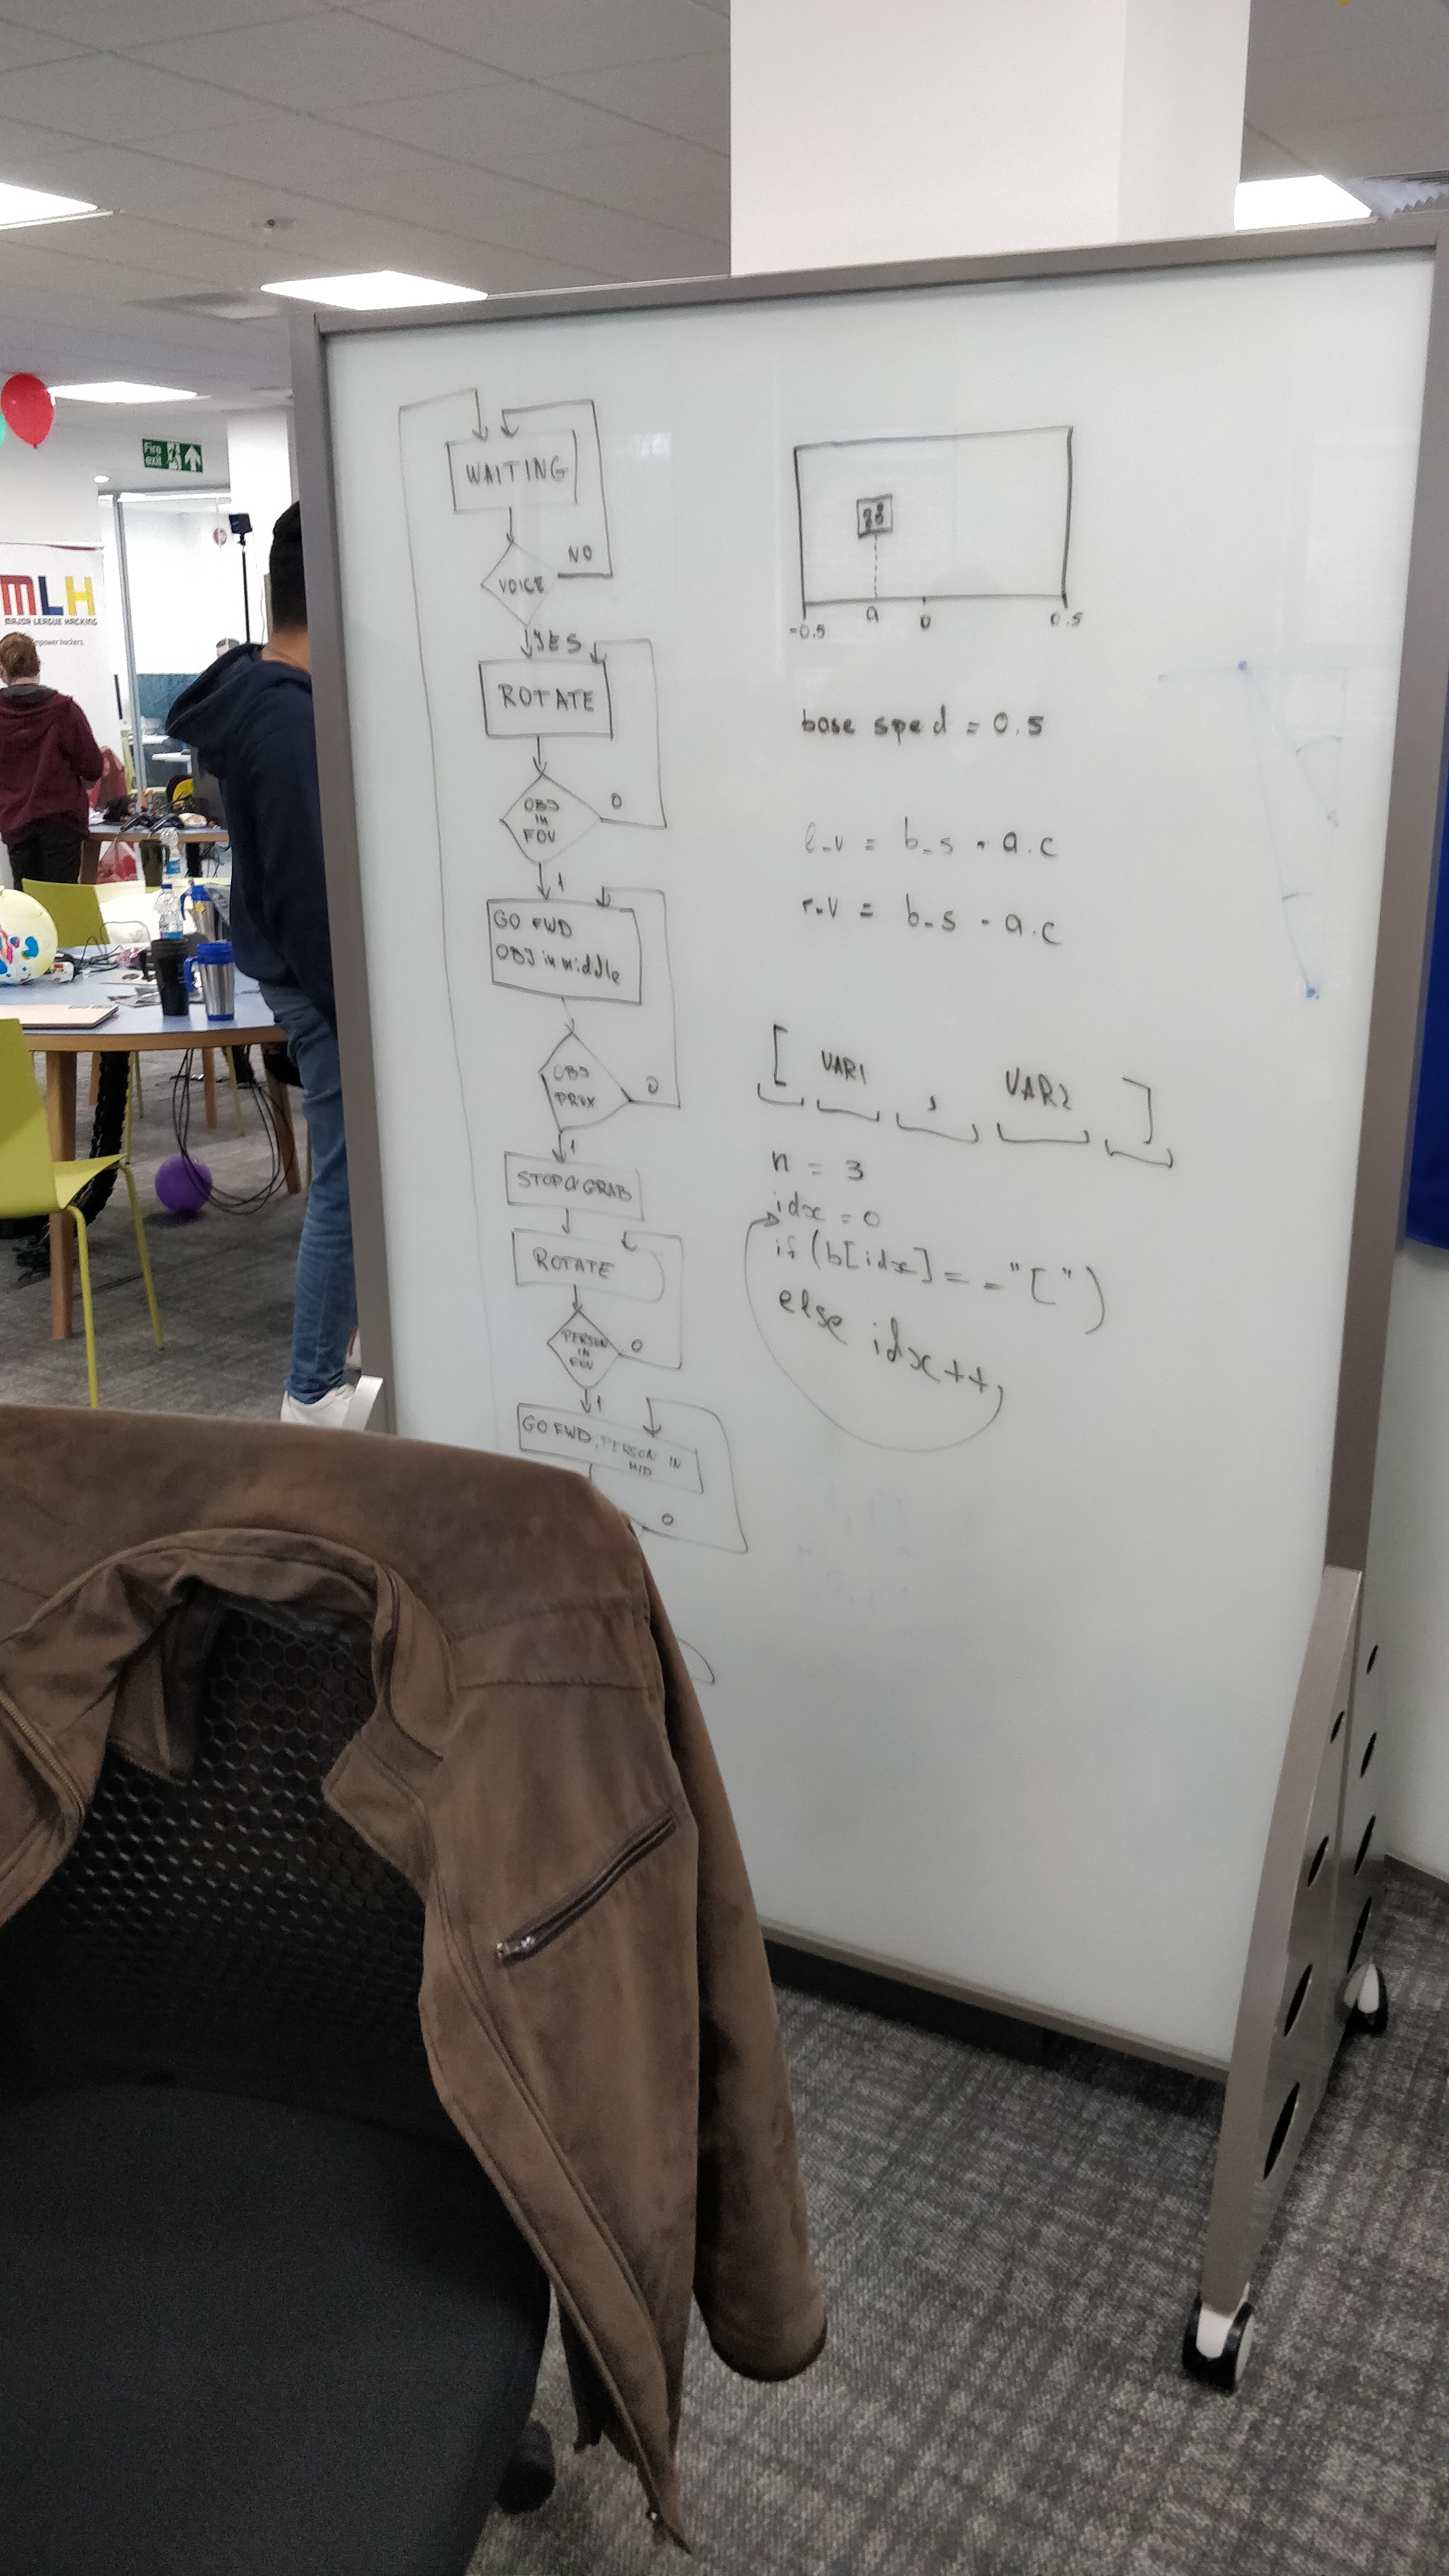 Fire
exit
MLH
MAJOR LEAGUE HACKING
empower hackers.
WAITING
VOICE
NO
YES
ROTATE
OBJ
IN
FOV
0
1
GO FWD
OBJ in middle
OBJ
PROX
0
1
STOP & GRAB
ROTATE
PERSON
IN
FOV
0
1
GO FWD, PERSON IN
MID
0
-0.5
a
0
0.5
base sped = 0.5
l_v = b_s + a.c
r_v = b_s - a.c
[ VAR1 , VAR2 ]
n = 3
idx = 0
if (b[idx] == "[")
else idx++,